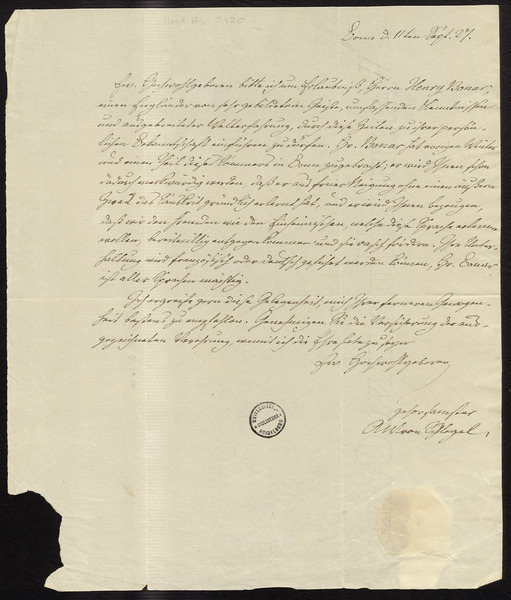 Bonn d. 11ten Sept. 27.
Ew. Hochwohlgeboren bitte ich um Erlaubniß, Herrn Henry Bonar,
einen Engländer von sehr gebildetem Geiste, umfassenden Kenntnissen
und ausgebreiteter Welterfahrung, durch diese Zeilen zu Ihrer persön-
lichen Bekanntschaft einführen zu dürfen. Hr. Bonar hat vorigen Winter
und einen Theil dieses Sommers in Bonn zugebracht; er wird Ihnen schon
dadurch merkwürdig werden, daß er aus freier Neigung ohne einen äußern
Zweck das Sanskrit gründlich erlernt hat, und er wird Ihnen bezeugen,
daß wir den Fremden wie den Einheimischen, welche diese Sprache erlernen
wollen, bereitwillig entgegen kommen und sie rasch fördern. Ihre Unter-
haltung wird französisch oder deutsch geführt werden können, Hr. Bonar
ist aller Sprachen mächtig.
Ich ergreife gern diese Gelegenheit, mich Ihrer ferneren Gewogen-
heit bestens zu empfehlen. Genehmigen Sie die Versicherung der aus-
gezeichneten Verehrung, womit ich die Ehre habe zu seyn
Ew. Hochwohlgeboren
gehorsamster
AWvon Schlegel
UNIVERSITÄTS
BIBLIOTHEK
HEIDELBERG